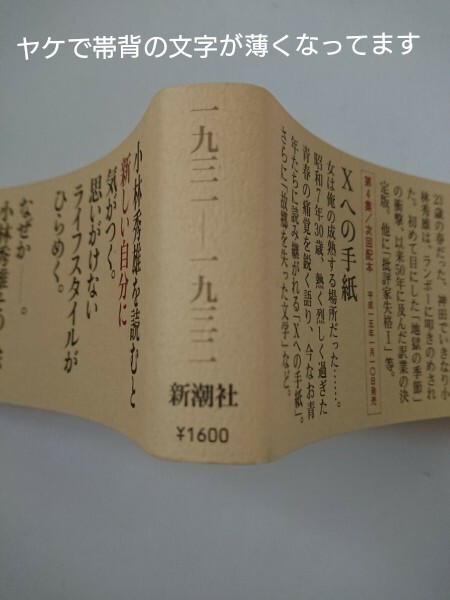 ヤケで帯背の文字が薄くなってます
23歳の春だった、神田でいきなり小
林秀雄は、ランボーに叩きのめされ
た。初めて目にした「地獄の季節」
の衝撃、以来50年に及んだ訳業の決
定版、他に「批評家失格Ⅰ」等。
第4集/次回配本 平成一五年一月一〇日発売
Xへの手紙
女は俺の成熟する場所だった……。
昭和7年30歳、熱く烈しく過ぎた
青春の痛覚を鋭く語り、今なお青
年たちに読み継がれる「Xへの手紙」。
さらに「故郷を失った文学」など。
一九三一―一九三二
新潮社
¥1600
小林秀雄を読むと
新しい自分に
気がつく。
思いがけない
ライフスタイルが
ひらめく。
なぜか――。
小林秀雄